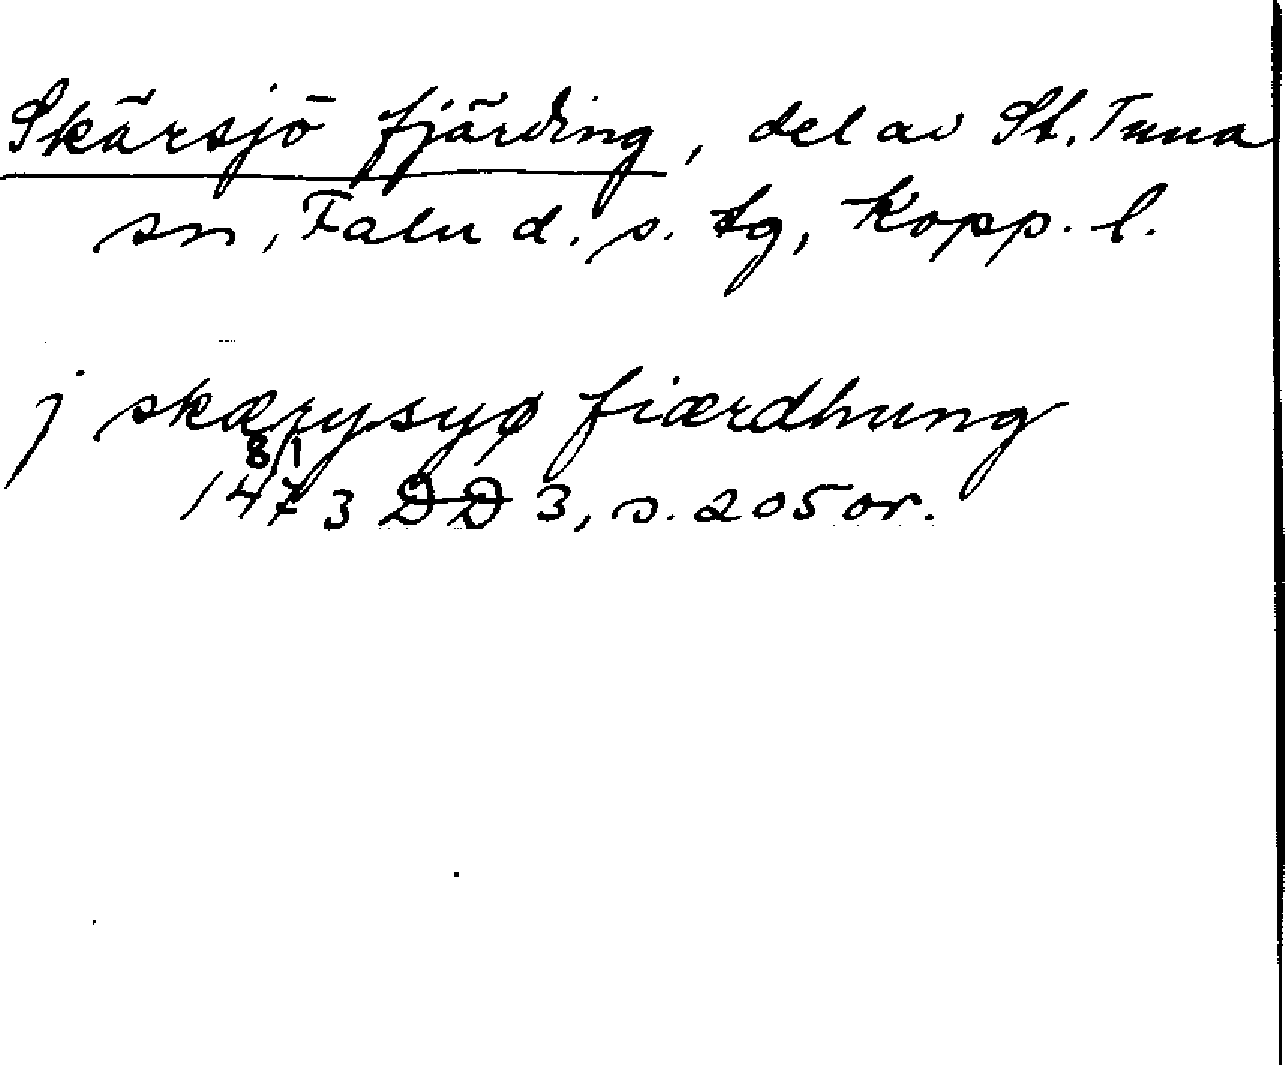 Skärsjö fjärding, del av St. Tuna
sn, Falu d. s. tg, Kopp. l.
j skærysyø fiærdhung
8/1
1473 DD 3, s. 205 or.